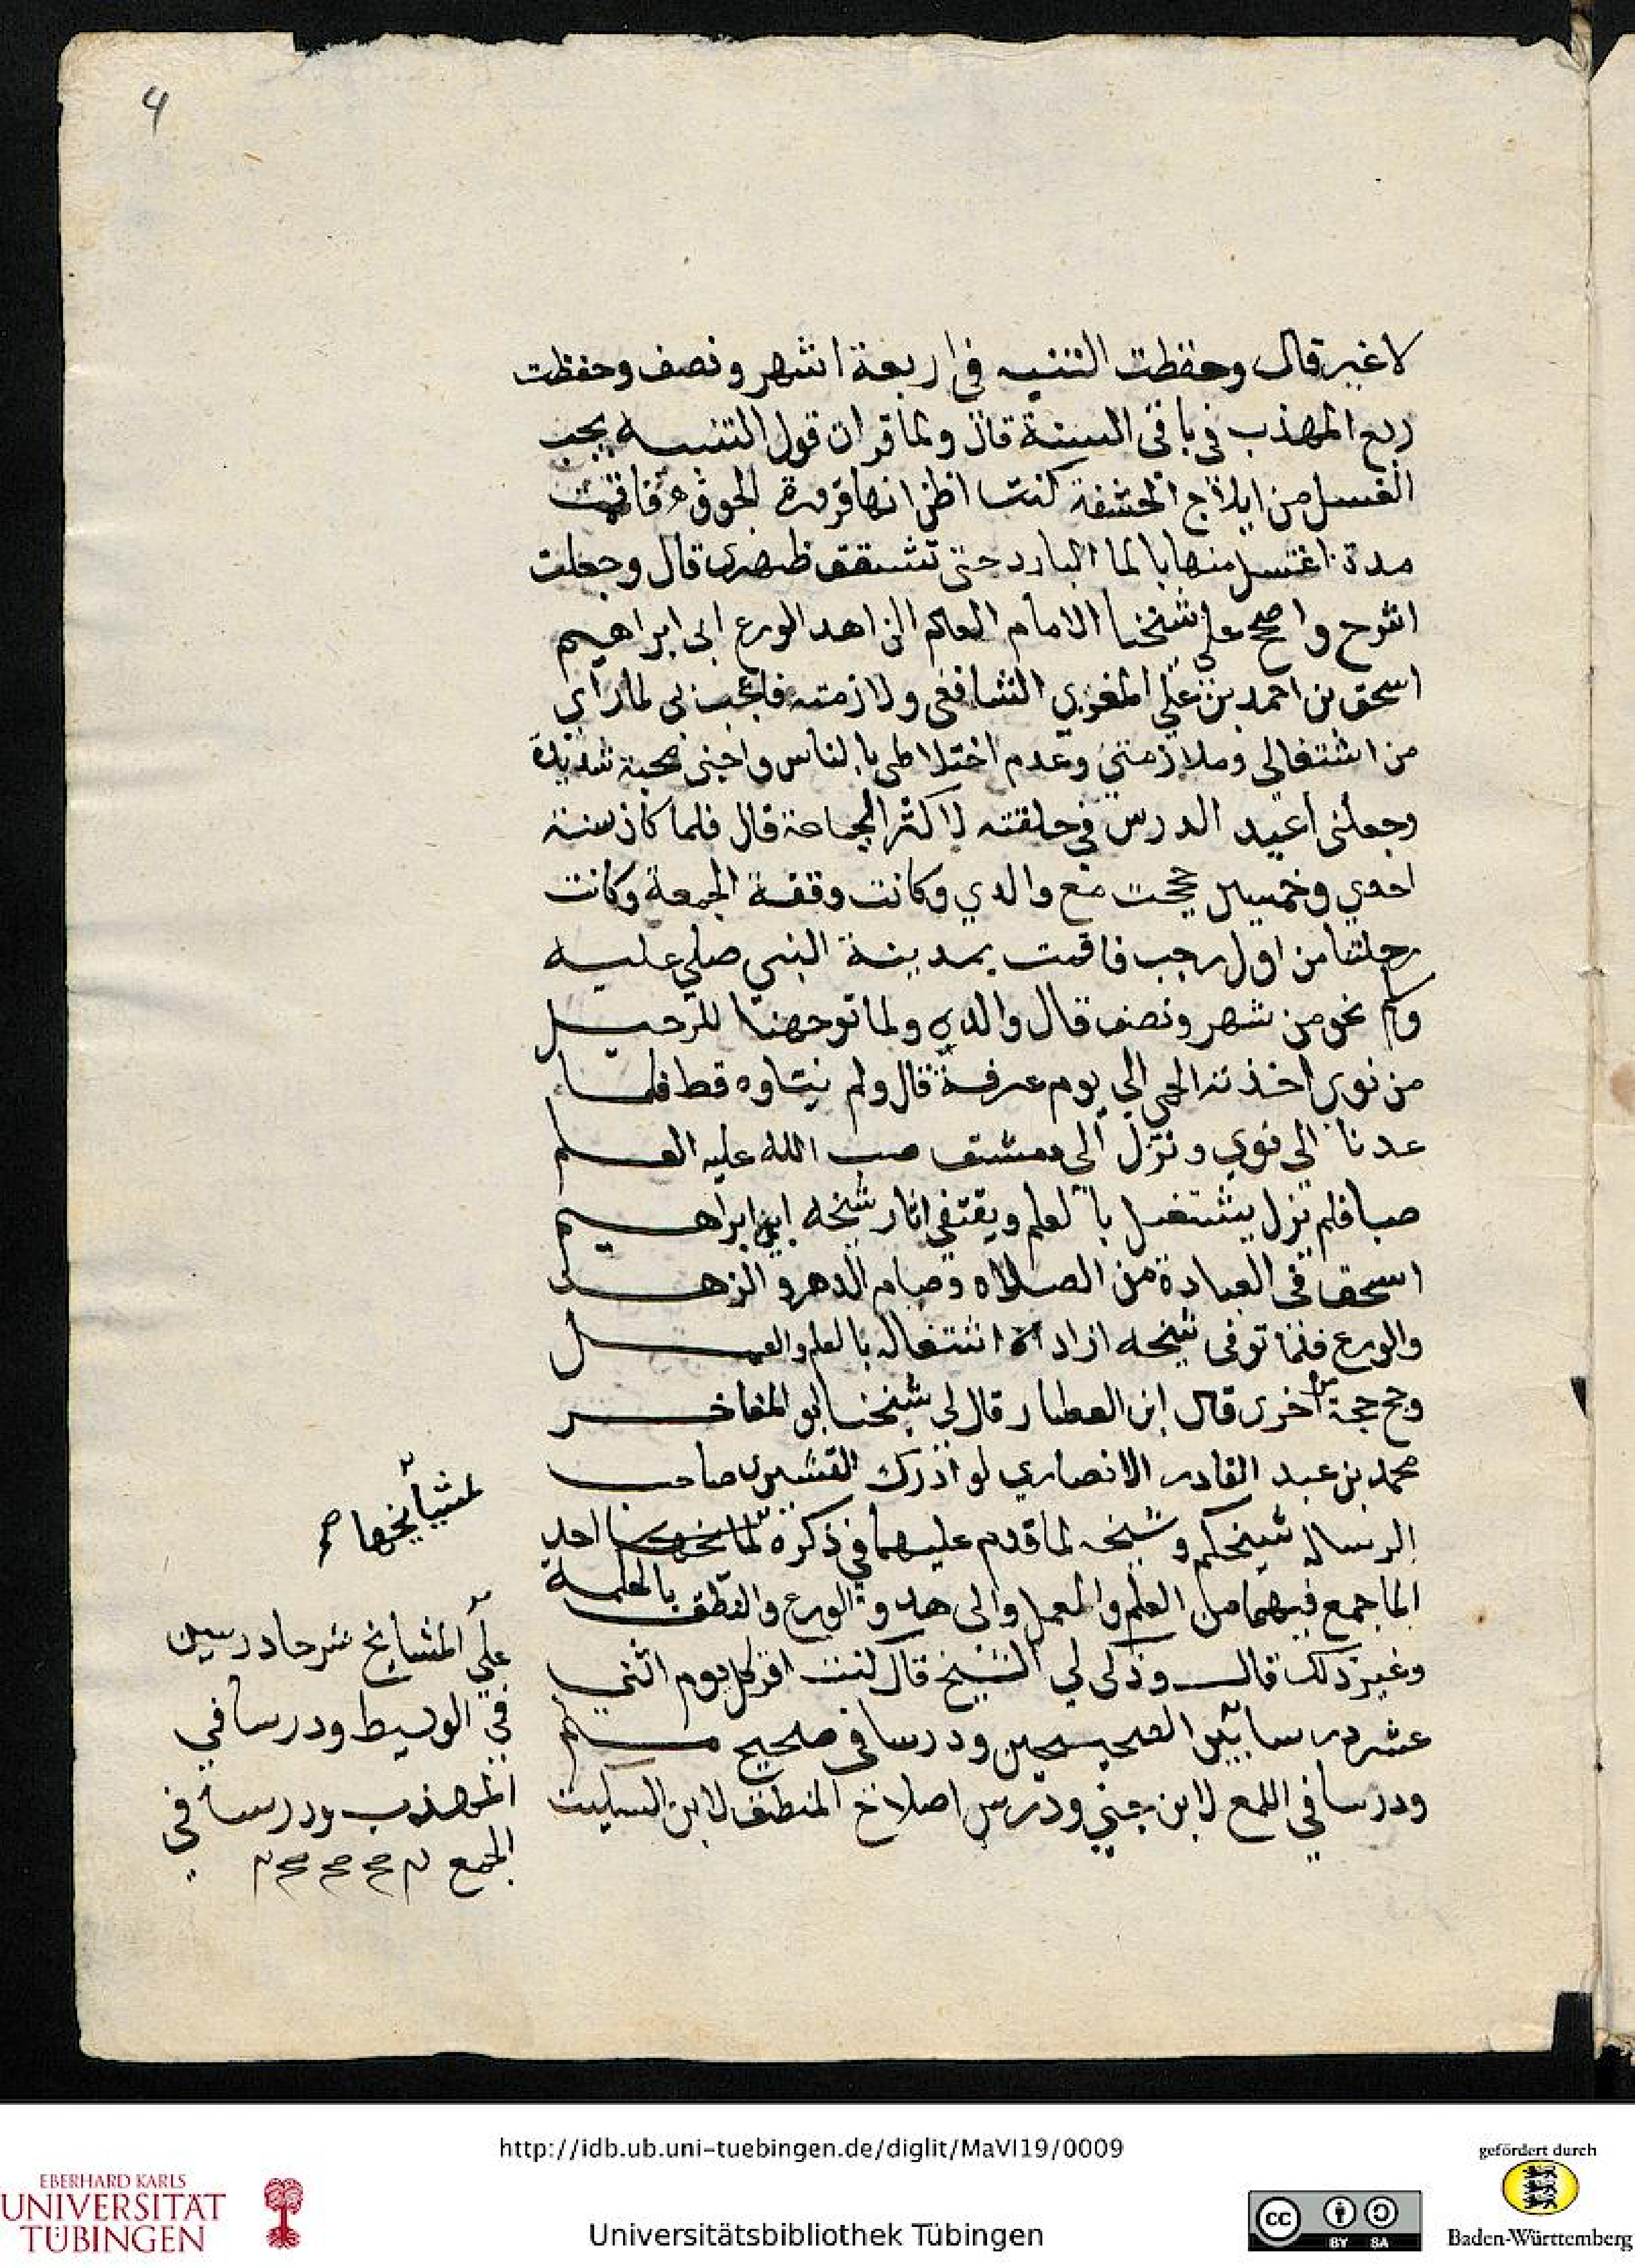 4
لا غير قال وحفظت التنبيه في اربعة اشهر ونصف وحفظت
ربع المهذب في باقي السنة قال ولما قرات قول التنبيه يجب
الغسل من ايلاج الحشفة كنت اظن انها قرقرة الجوف فاقمت
مدة اغتسل منها بالما البارد حتى تشقق ظهري قال وجعلت
اشرح واصحح على شيخنا الامام العالم الزاهد الورع ابي ابراهيم
اسحق بن احمد بن علي المغربي الشافعي ولازمته فاعجب بي لما راي
من اشتغالي وملازمتي وعدم اختلاطي بالناس واحبني محبة شديدة
وجعلني اعيد الدرس في حلقته لاكثر الجماعة قال فلما كان سنة
احدي وخمسين حججت مع والدي وكانت وقفة الجمعة وكانت
رحلتنا من اول رجب فاقمت بمدينة النبي صلي عليه
وسلم نحو من شهر ونصف قال والده ولما توجهنا للرحيل
من نوي اخذته الحمي الي يوم عرفة قال ولم يتاوه قط فلما
عدنا الي نوي ونزل الي دمشق صب الله عليه العلم
صبا فلم يزل يشتغل بالعلم ويقتفي اثار شيخه ابي ابراهيم
اسحق في العبادة من الصلاه وصيام الدهر والزهد
والورع فلما توفي شيخه ازداد اشتغاله بالعلم والعمل
وحج حجة مرة اخرى قال ابن العطار قال لي شيخنا ابو المفاخر
محمد بن عبد القادر الانصاري لو ادرك القشيري صاحب
الرساله شيخكم وشيخه لما قدم عليهما في ذكره لمشايخها احد
الما جمع فيهما من العلم والعمل والزهد والورع والنطق بالحكمة
وغير ذلك قال وذكر لي الشيخ قال كنت اقر كل يوم اثني
عشر درسا بين الصحيحين ودرسا في صحيح مسلم
ودرسا في اللمع لابن جني ودرس اصلاح المنطق لابن السكيت
لمشيايخها صح
علي المشايخ شرحا درسين
في الوسيط ودرسا في
المهذب ودرسا في
الجمع
http://idb.ub.uni-tuebingen.de/diglit/MaVI19/0009
EBERHARD KARLS
UNIVERSITÄT
TÜBINGEN
Universitätsbibliothek Tübingen
cc BY SA
gefördert durch
Baden-Württemberg